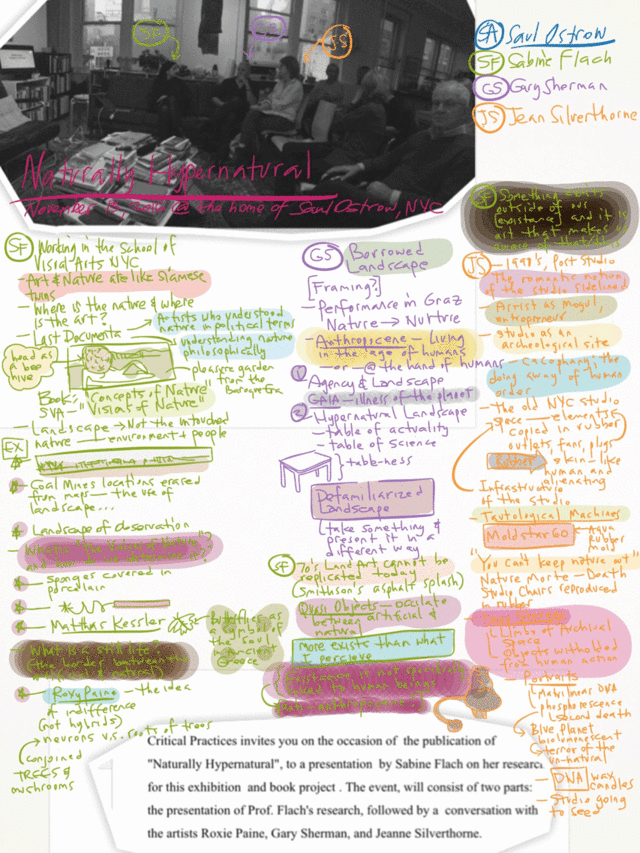 SF
GS
JS
SA Saul Ostrow
SF Sabine Flach
GS Gary Sherman
JS Jean Silverthorne
Naturally Hypernatural
@ the home of Saul Ostrow, NYC
SF Working in the School of
Visual Arts NYC
- Art & Nature are like Siamese
twins
- Where is the nature & where
is the art?
- Last Documenta
Artists who understood
nature in political terms
understanding nature
philosophically
head as
a bee
hive
pleasure garden
from the
Baroque Era
Book: "Concepts of Nature"
SVA - "Vision of Nature"
- Landscape → Not the untouched
nature environment & people
EX
* Coal Mines locations erased
from maps — the use of
landscape...
* Landscape of observation
* Sponges covered in
porcelain
* Matthas Kessler
Butterflies as
a symbol of
the Soul
in Ancient
Greece
- What is a still life?
(the border between the
* Roxy Paine — the idea
of indifference
(not hybrids)
neurons v.s. roots of trees
conjoined
TREES &
mushrooms
GS Borrowed
Landscape
[Framing?]
- Performance in Graz
Nature → Nurture
- Anthropocene - Living
in the age of humans
- or - @ the hand of humans
① Agency & Landscape
GAIA - illness of the planet
② Hypernatural Landscape
- table of actuality
- table of Science
} table-ness
Defamiliarized
Landscape
[take something &
present it in a
different way
SF 70's Land Art cannot be
replicated today
(Smithson's asphalt splash)
Quasi Objects - oscilate
between artificial &
natural
more exists than what
I percieve
SF Something exists
outside of our
existence and it is
art that makes us
aware of that
JS - 1990's, Post Studio
The romantic notion
of the studio sidelined
Artist as Mogul,
entrepreneur
- Studio as an
archeological site
- Cacophany; the
doing away of human
order
- The old NYC studio
space - elements
copied in rubber
outlets, fans, plugs
Rubber - skin-like
human and
alienating
Infrastructure
of the Studio
- Tautological Machines
Mold star 60
Aqua
Rubber
mold
"You can't keep nature out"
Nature Morte - Death
Studio Chairs reproduced
in rubber
Limbo of Archival
Space
Objects withheld
from human action
- Portraits
phosphorescence
Blue Planet
bioluminescent
terror of the
un-natural
- DNA wax
candles
- Studio going
to seed
Critical Practices invites you on the occasion of the publication of
"Naturally Hypernatural", to a presentation by Sabine Flach on her research
for this exhibition and book project . The event, will consist of two parts:
the presentation of Prof. Flach's research, followed by a conversation with
the artists Roxie Paine, Gary Sherman, and Jeanne Silverthorne.